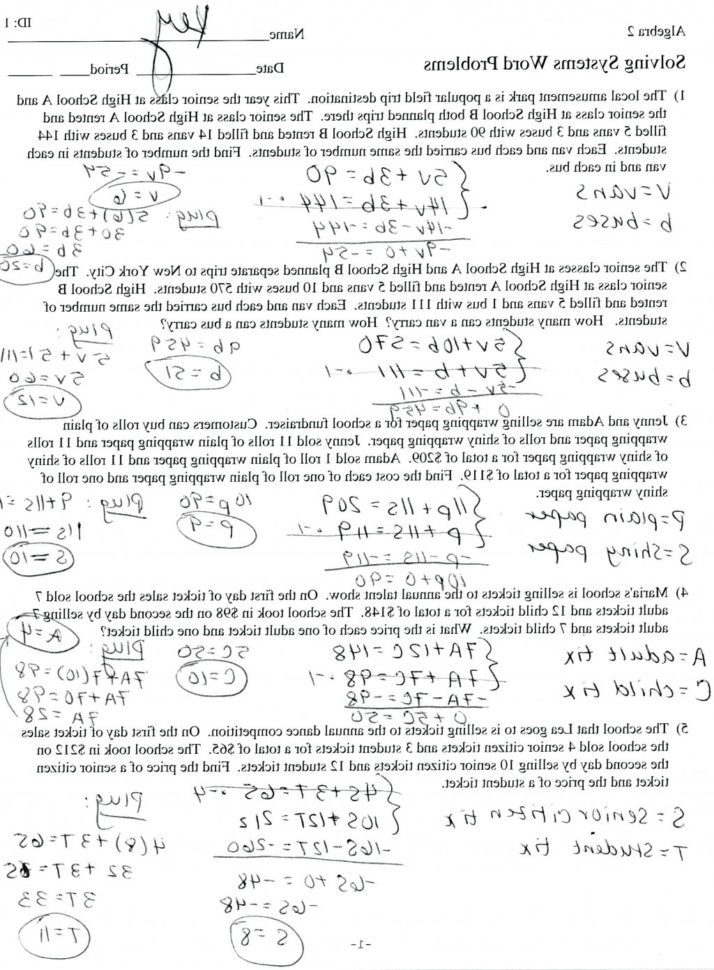 Algebra 2
Name Key ID: 1
Solving Systems Word Problems
Date Period
1) The local amusement park is a popular field trip destination. This year the senior class at High School A and
the senior class at High School B both planned trips there. The senior class at High School A rented and
filled 5 vans and 3 buses with 90 students. High School B rented and filled 14 vans and 3 buses with 144
students. Each van and each bus carried the same number of students. Find the number of students in each
van and in each bus.
V=vans
b=buses
5v + 3b = 90
14v + 3b = 144 ·-1
-14v - 3b = -144
-9v + 0 = -54
-9v = -54
v = 6
plug: 5(6)+3b=90
30+3b=90
3b = 60
b=20
2) The senior classes at High School A and High School B planned separate trips to New York City. The
senior class at High School A rented and filled 5 vans and 10 buses with 570 students. High School B
rented and filled 5 vans and 1 bus with 111 students. Each van and each bus carried the same number of
students. How many students can a van carry? How many students can a bus carry?
V=vans
b=buses
5v+10b=570
5v+b = 111 ·-1
-5v - b = -111
0 + 9b = 459
9b = 459
b = 51
plug:
5v + 51 = 111
5v=60
v=12
3) Jenny and Adam are selling wrapping paper for a school fundraiser. Customers can buy rolls of plain
wrapping paper and rolls of shiny wrapping paper. Jenny sold 11 rolls of plain wrapping paper and 11 rolls
of shiny wrapping paper for a total of $209. Adam sold 1 roll of plain wrapping paper and 11 rolls of shiny
wrapping paper for a total of $119. Find the cost each of one roll of plain wrapping paper and one roll of
shiny wrapping paper.
P=plain paper
S=shiny paper
11p + 11s = 209
p + 11s = 119 ·-1
-p - 11s = -119
10p + 0 = 90
10p=90
p=9
plug: 9+11s=
11s=110
s=10
4) Maria's school is selling tickets to the annual talent show. On the first day of ticket sales the school sold 7
adult tickets and 12 child tickets for a total of $148. The school took in $98 on the second day by selling 7
adult tickets and 7 child tickets. What is the price each of one adult ticket and one child ticket?
A=adult tix
C=child tix
7A+12C=148
7A+7C=98 ·-1
-7A-7C=-98
0+5C=50
5C=50
C=10
plug:
7A+7(10)=98
7A+70=98
7A=28
A=4
5) The school that Lea goes to is selling tickets to the annual dance competition. On the first day of ticket sales
the school sold 4 senior citizen tickets and 3 student tickets for a total of $65. The school took in $212 on
the second day by selling 10 senior citizen tickets and 12 student tickets. Find the price of a senior citizen
ticket and the price of a student ticket.
S=senior citizen tix
T=student tix
4S+3T=65 ·-4
10S+12T=212
-16S-12T=-260
-6S +0 = -48
-6S=-48
S=8
plug:
4(8)+3T=65
32+3T=65
3T=33
T=11
-1-